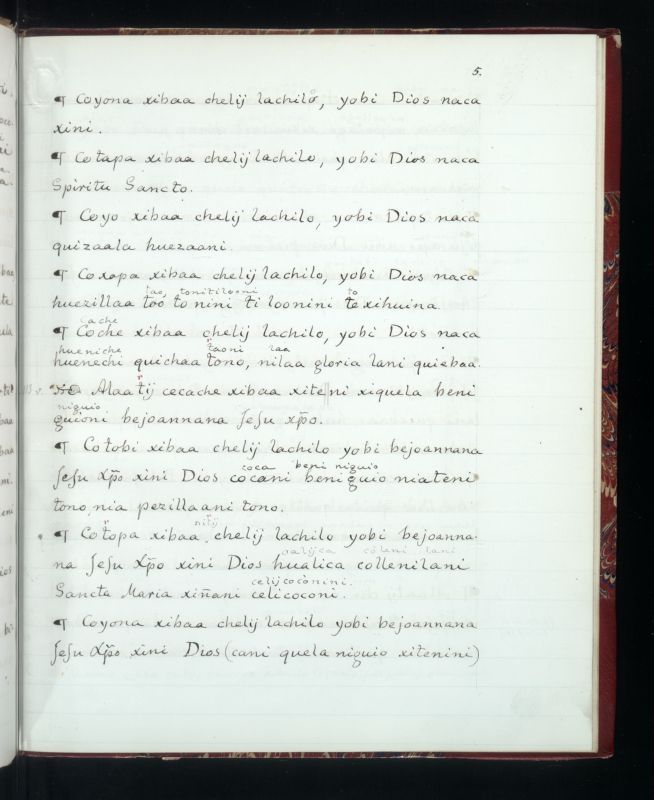 5.
¶ Coyona xibaa chelij lachilo, yobi Dios naca
xini.
¶ Cotapa xibaa chelij lachilo, yobi Dios naca
Spiritu Sancto.
¶ Coyo xibaa chelij lachilo, yobi Dios naca
quizaala huezaani.
¶ Coxopa xibaa chelij lachilo, yobi Dios naca
tao, tonitilooni to
huezillaa too to nini ti loonini te xihuina.
cache
¶ Coche xibaa chelij lachilo, yobi Dios naca
hueniche r taoni laa
huenechi quichaa tono, nilaa gloria lani quiebaa.
r
Alaatij cecache xibaa xiteni xiquela beni
niguio
guioni bejoannana Jesu xp̃o.
¶ Cotobi xibaa chelij lachilo yobi bejoannana
coca beni niguio
Jesu Xp̃o xini Dios cocani beniguio niateni
tono, nia pezillaani tono.
r nitij
¶ Cotopa xibaa, chelij lachilo yobi bejoanna-
oalijca colani lani
na Jesu Xp̃o xini Dios hualica collenilani
celijcoconini.
Sancta Maria xiñani celicoconi.
¶ Coyona xibaa chelij lachilo yobi bejoannana
Jesu Xp̃o xini Dios (cani quela niguio xitenini)